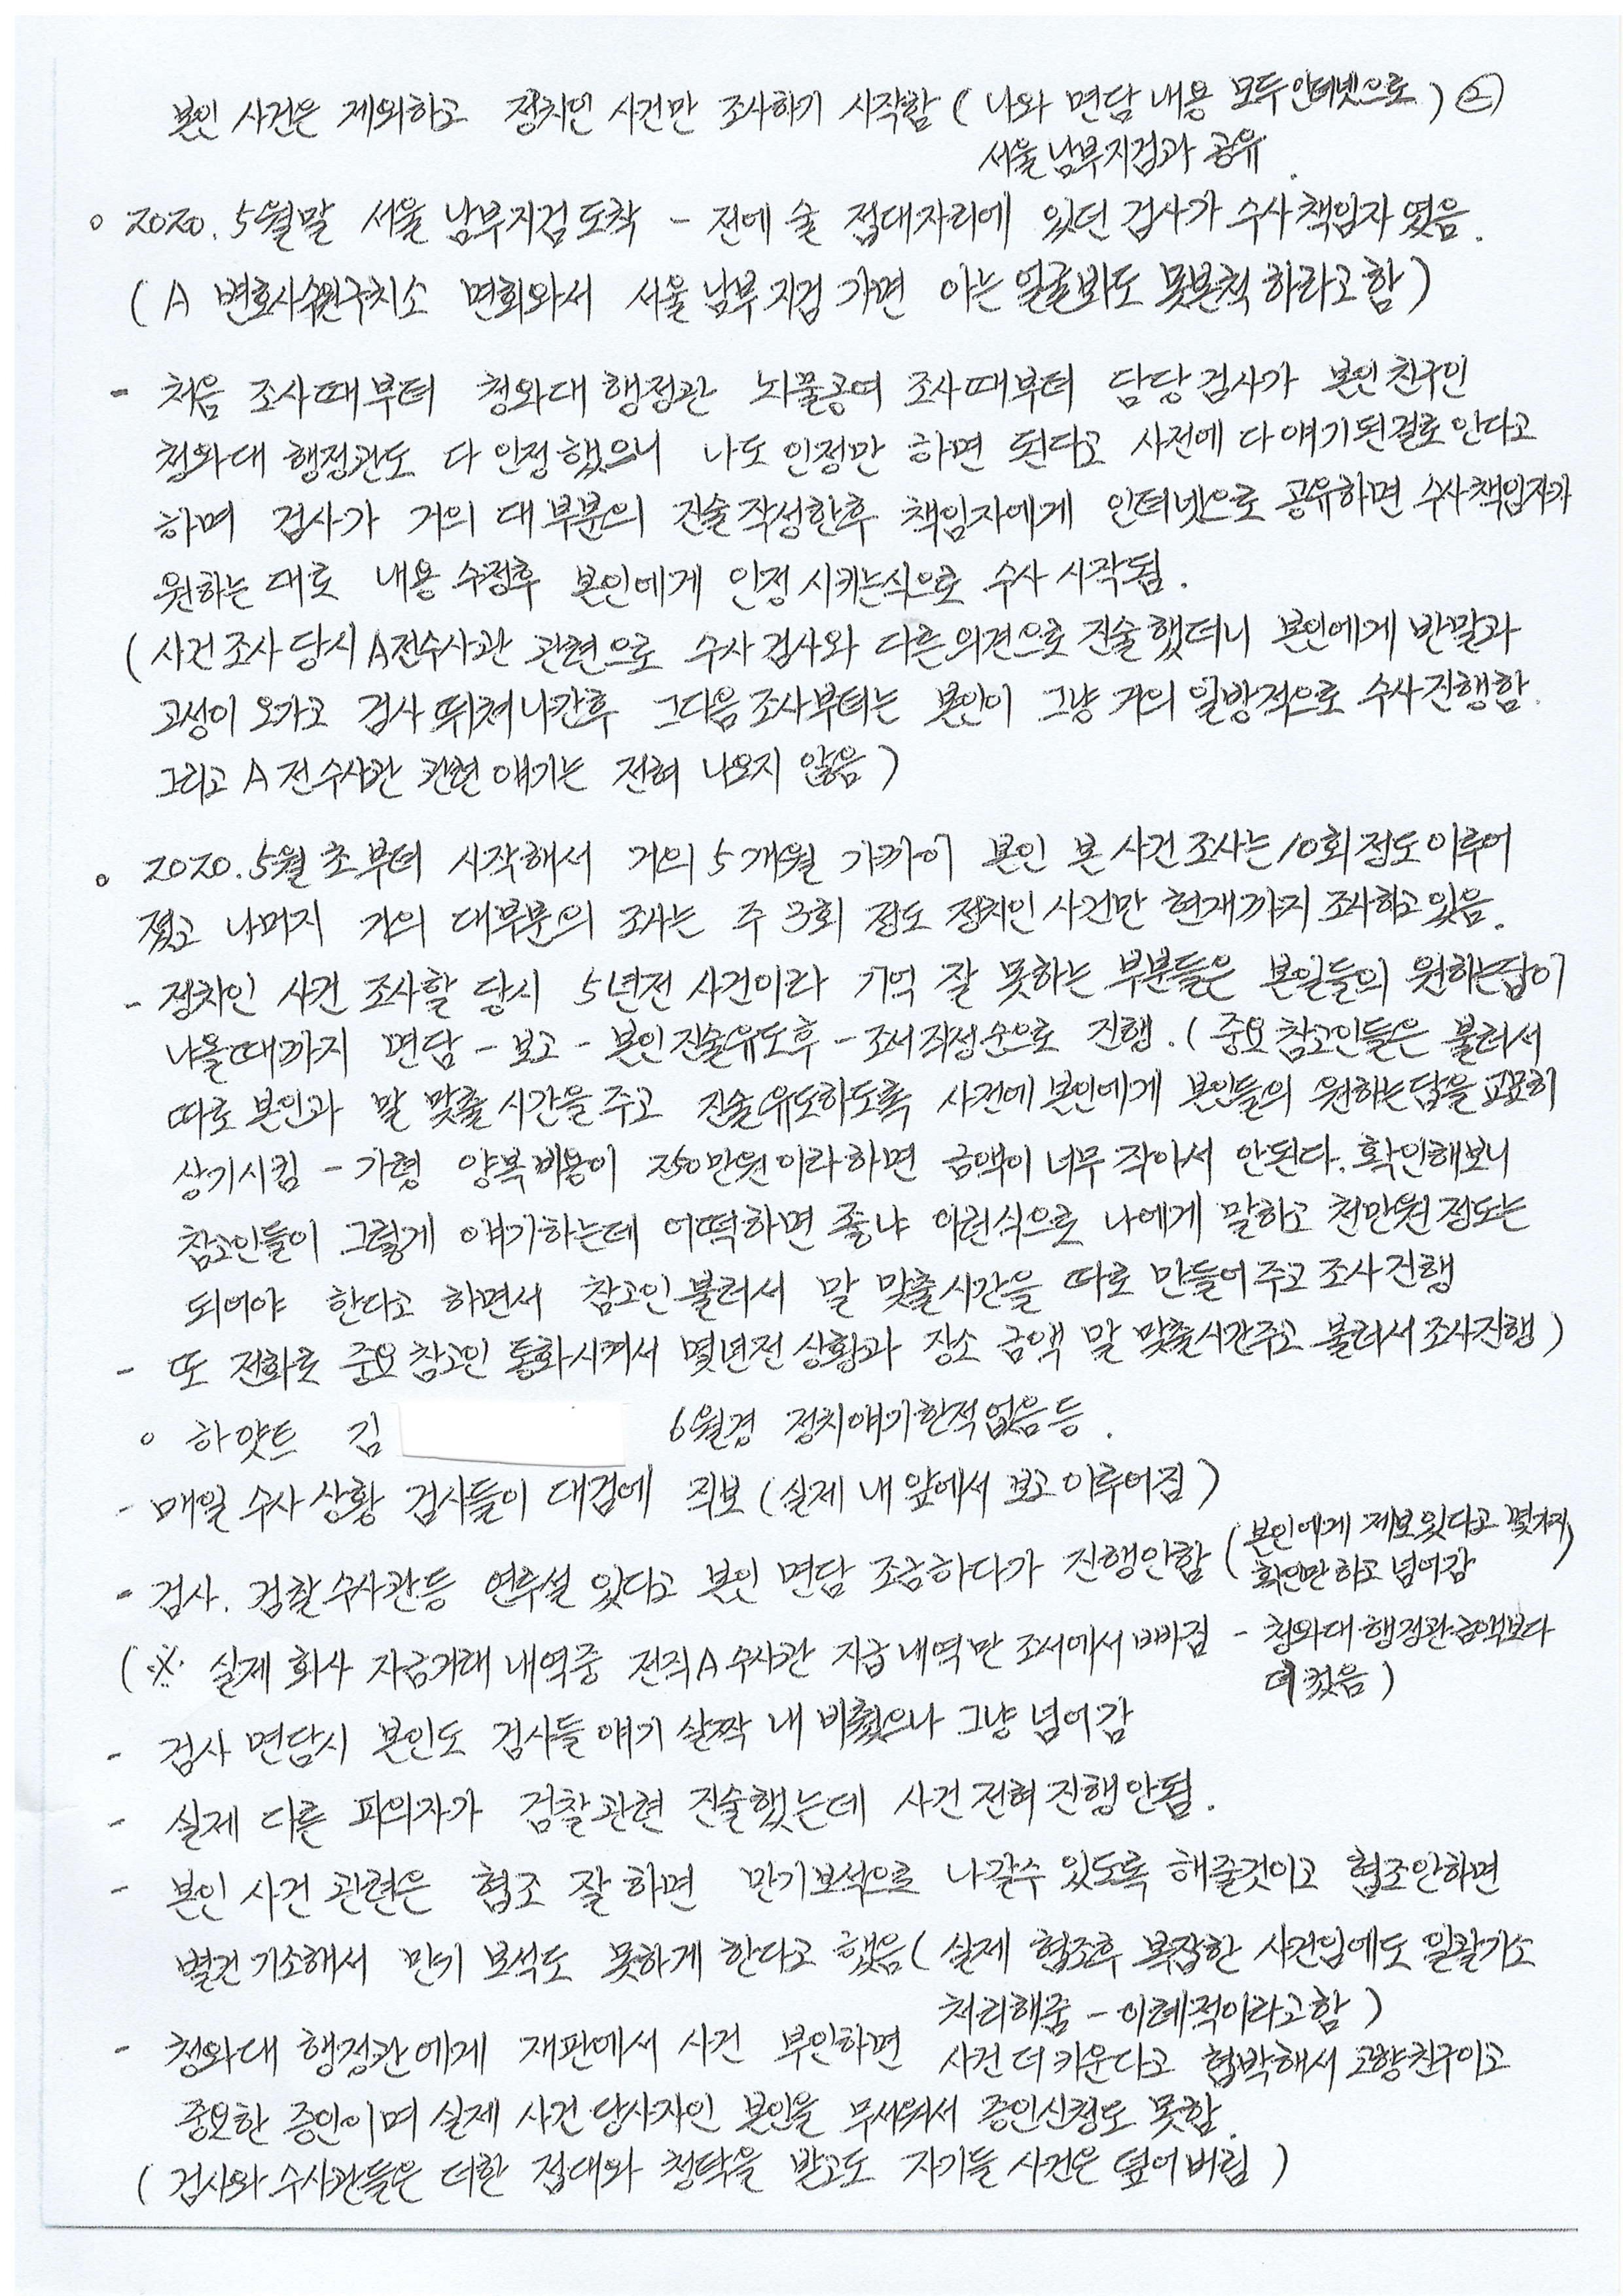 본인 사건은 제외하고 정치인 사건만 조사하기 시작함 ( 나와 면담 내용 모두 인터넷으로 ) ②
서울 남부지검과 공유.
○ 2020. 5월말 서울 남부지검 도착 - 전에 술 접대자리에 있던 검사가 수사 책임자 였음.
( A 변호사 수원구치소 면회와서 서울 남부 지검 가면 아는 얼굴봐도 못본척 하라고 함 )
- 처음 조사때부터 청와대 행정관 뇌물공여 조사때부터 담당 검사가 본인 친구인
청와대 행정관도 다 인정했으니 나도 인정만 하면 된다고 사전에 다 얘기된걸로 안다고
하며 검사가 거의 대부분의 진술 작성한후 책임자에게 인터넷으로 공유하면 수사책임자가
원하는 대로 내용 수정후 본인에게 인정 시키는식으로 수사 시작됨.
( 사건 조사 당시 A전수사관 관련으로 수사 검사와 다른 의견으로 진술했더니 본인에게 반말과
고성이 오가고 검사 뛰쳐나간후 그다음 조사부터는 본인이 그냥 거의 일방적으로 수사 진행함.
그리고 A 전수사관 관련 얘기는 전혀 나오지 않음 )
○ 2020. 5월 초부터 시작해서 거의 5개월 가까이 본인 본 사건 조사는 10회 정도 이루어
졌고 나머지 거의 대부분의 조사는 주 3회 정도 정치인 사건만 현재까지 조사하고 있음.
- 정치인 사건 조사할 당시 5년전 사건이라 기억 잘 못하는 부분들은 본인들의 원하는답이
나올때까지 면담 - 보고 - 본인 진술유도후 - 조서 작성 순으로 진행. ( 중요 참고인들은 불러서
따로 본인과 말 맞출 시간을 주고 진술 유도하도록 사전에 본인에게 본인들의 원하는 답을 교묘히
상기시킴 - 가형 양복 비용이 250만원 이라하면 금액이 너무 작아서 안된다. 확인해보니
참고인들이 그렇게 얘기하는데 어떡하면 좋냐 이런식으로 나에게 말하고 천만원 정도는
되어야 한다고 하면서 참고인 불러서 말 맞출시간을 따로 만들어 주고 조사 진행
- 또 전화로 중요 참고인 통화시켜서 몇년전 상황과 장소 금액 말 맞출시간주고 불러서 조사진행 )
○ 하얏트 김 6월경 정치얘기한적 없음 등.
- 매일 수사 상황 검사들이 대검에 직보 ( 실제 내 앞에서 보고 이루어짐 )
- 검사. 검찰수사관등 연루설 있다고 본인 면담 조금하다가 진행안함 ( 본인에게 제보 있다고 몇가지
확인만 하고 넘어감 )
( ※ 실제 회사 자금거래 내역중 전직 A 수사관 지급 내역만 조서에서 빠짐 - 청와대 행정관 금액보다
더 컸음 )
- 검사 면담시 본인도 검사들 얘기 살짝 내 비췄으나 그냥 넘어감
- 실제 다른 피의자가 검찰관련 진술했는데 사건 전혀 진행안됨.
- 본인 사건 관련은 협조 잘 하면 만기보석으로 나갈수 있도록 해줄것이고 협조안하면
별건 기소해서 만기 보석도 못하게 한다고 했음 ( 실제 협조후 복잡한 사건임에도 일괄기소
처리해줌 - 이례적이라고 함 )
- 청와대 행정관에게 재판에서 사건 부인하면 사건 더 키운다고 협박해서 고향친구이고
중요한 증인이며 실제 사건 당사자인 본인을 무서워서 증인신청도 못함.
( 검사와 수사관들은 더한 접대와 청탁을 받고도 자기들 사건은 덮어 버림 )